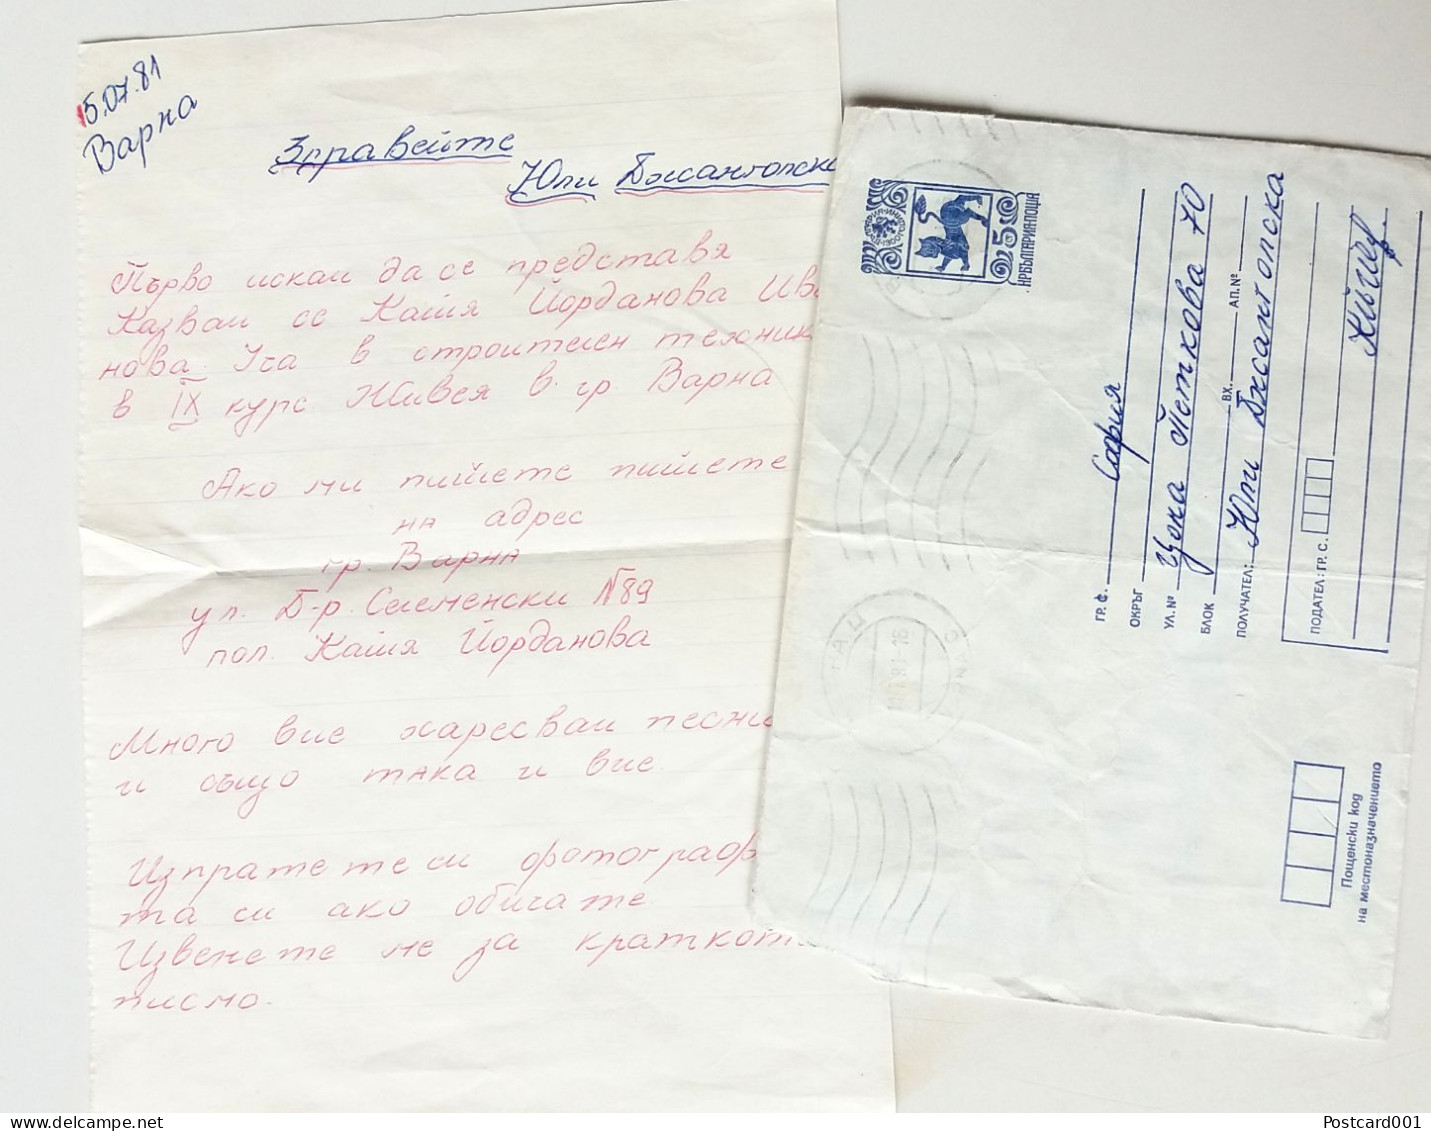 15.07.81
Варна
Здравейте
Юли Джангозка
Първо искам да се представя
Казвам се Катя Йорданова Ива
нова. Уча в строителен техник
в IX курс. Живея в гр. Варна
Ако ми пишете пишете
на адрес
гр. Варна
ул. Д-р. Селеменски №89
пол. Катя Йорданова
Много вие харесвам песни
и също така и вие
Изпратете си фотограф
та си ако обичате
Извенете ме за краткото
писмо.
5
НР БЪЛГАРИЯ·ПОЩА
ГР. С. София
ОКРЪГ
УЛ. № Цона Петкова 70
БЛОК ВХ. АП.№
ПОЛУЧАТЕЛ: Юли Джангозка
ПОДАТЕЛ: ГР. С.
Пощенски код
на местоназначението
Postcard001